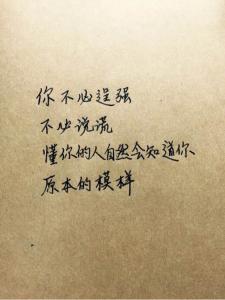 你不必逞强
不必说谎
懂你的人自然会知道你
原本的模样